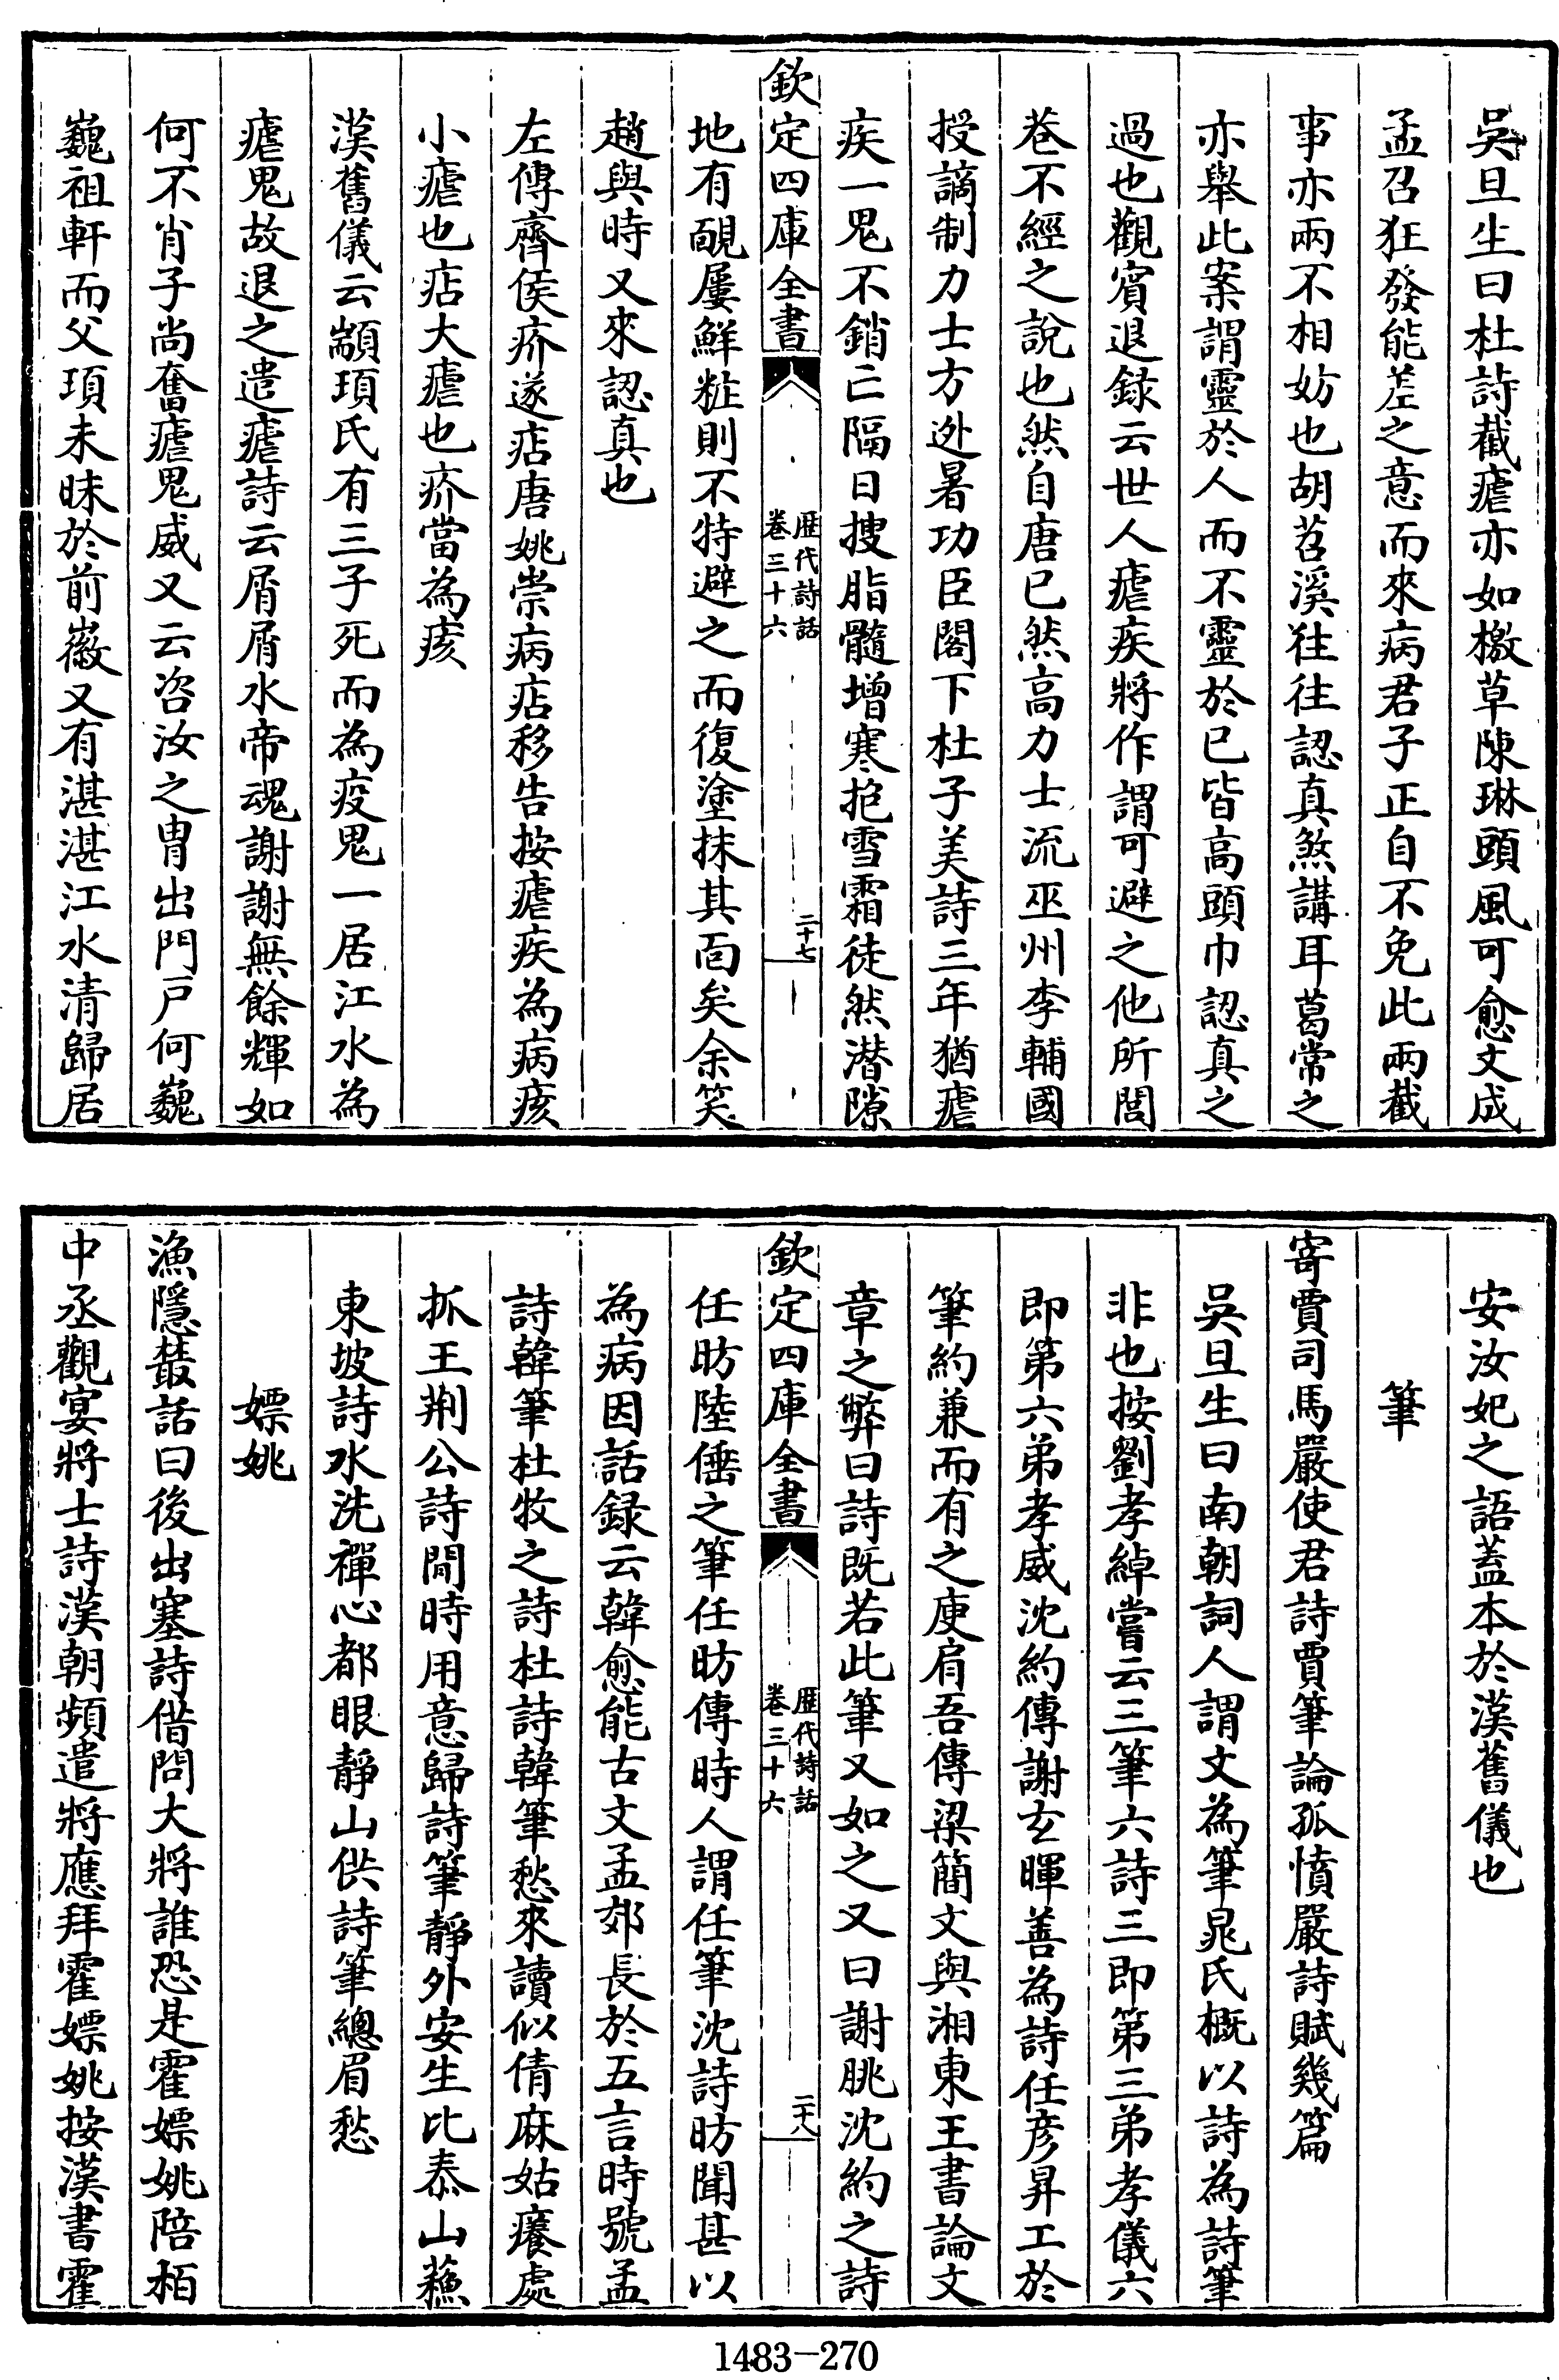 吳旦生曰杜詩截瘧亦如檄草陳琳頭風可愈文成
孟召狂發能差之意而來病君子正自不免此兩截
事亦兩不相妨也胡苕溪往往認真煞講耳葛常之
亦舉此案謂靈於人而不靈於已皆高頭巾認真之
過也觀賓退録云世人瘧疾將作謂可避之他所閭
巷不經之說也然自唐已然高力士流巫州李輔國
授謫制力士方逃暑功臣閣下杜子美詩三年猶瘧
疾一鬼不銷亡隔日搜脂髓增寒抱雪霜徒然潛隙
欽定四庫全書
歷代詩話
卷三十六
二十七
地有靦屢鮮粧則不特避之而復塗抹其面矣余笑
趙與時又來認真也
左傳齊侯疥遂痁唐姚崇病痁移告按瘧疾為病痎
小瘧也痁大瘧也疥當為痎
漢舊儀云顓頊氏有三子死而為疫鬼一居江水為
瘧鬼故退之遣瘧詩云屑屑水帝魂謝謝無餘輝如
何不肖子尚奮瘧鬼威又云咨汝之胄出門戶何巍
巍祖軒而父頊未昧於前徽又有湛湛江水清歸居
安汝妃之語蓋本於漢舊儀也
筆
寄賈司馬嚴使君詩賈筆論孤憤嚴詩賦幾篇
吳旦生曰南朝詞人謂文為筆晁氏概以詩為詩筆
非也按劉孝綽嘗云三筆六詩三即第三弟孝儀六
即第六弟孝威沈約傳謝玄暉善為詩任彥昇工於
筆約兼而有之庾肩吾傳梁簡文與湘東王書論文
章之弊曰詩既若此筆又如之又曰謝朓沈約之詩
欽定四庫全書
歷代詩話
卷三十六
二十八
任昉陸倕之筆任昉傳時人謂任筆沈詩昉聞甚以
為病因話録云韓愈能古文孟郊長於五言時號孟
詩韓筆杜牧之詩杜詩韓筆愁來讀似倩麻姑癢處
抓王荆公詩閒時用意歸詩筆靜外安生比泰山蘓
東坡詩水洗禪心都眼靜山供詩筆總眉愁
嫖姚
漁隱叢話曰後出塞詩借問大將誰恐是霍嫖姚陪栢
中丞觀宴將士詩漢朝頻遣將應拜霍嫖姚按漢書霍
1483-270